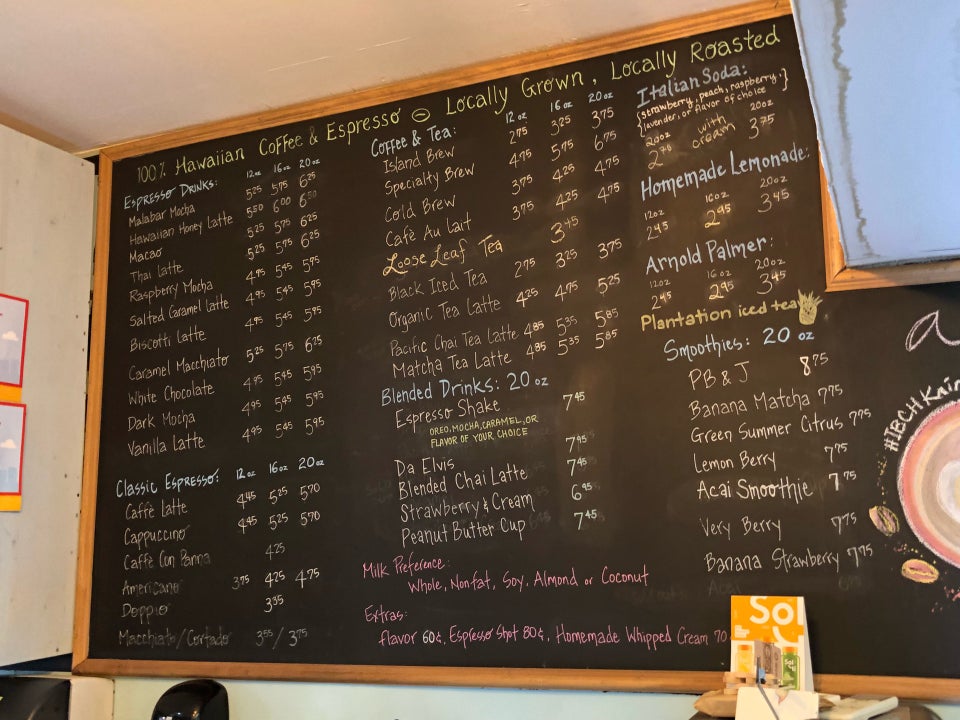 100% Hawaiian Coffee & Espresso – Locally Grown, Locally Roasted
Espresso Drinks: 12oz 16oz 20oz
Malabar Mocha 5.25 5.75 6.25
Hawaiian Honey Latte 5.50 6.00 6.50
Macao 5.25 5.75 6.25
Thai Latte 5.25 5.75 6.25
Raspberry Mocha 4.95 5.45 5.95
Salted Caramel Latte 4.95 5.45 5.95
Biscotti Latte 4.95 5.45 5.95
Caramel Macchiato 5.25 5.75 6.25
White Chocolate 4.95 5.45 5.95
Dark Mocha 4.95 5.45 5.95
Vanilla Latte 4.95 5.45 5.95
Classic Espresso: 12oz 16oz 20oz
Caffè Latte 4.45 5.25 5.70
Cappuccino 4.45 5.25 5.70
Caffè Con Panna 4.25
Americano 3.75 4.25 4.75
Doppio 3.35
Macchiato/Cortado 3.55/3.75
Coffee & Tea: 12oz 16oz 20oz
Island Brew 2.75 3.25 3.75
Specialty Brew 4.75 5.75 6.75
Cold Brew 3.75 4.25 4.75
Cafè Au Lait 3.75 4.25 4.75
Loose Leaf Tea 3.45
Black Iced Tea 2.75 3.25 3.75
Organic Tea Latte 4.25 4.75 5.25
Pacific Chai Tea Latte 4.85 5.35 5.85
Matcha Tea Latte 4.85 5.35 5.85
Blended Drinks: 20oz
Espresso Shake 7.45
OREO, MOCHA, CARAMEL, OR
FLAVOR OF YOUR CHOICE
Da Elvis 7.95
Blended Chai Latte 7.45
Strawberry & Cream 6.95
Peanut Butter Cup 7.45
Milk Preference:
Whole, Nonfat, Soy, Almond or Coconut
Extras:
Flavor 60¢, Espresso Shot 80¢, Homemade Whipped Cream 70
Italian Soda:
{strawberry, peach, raspberry,}
{lavender, or flavor of choice
20oz with cream 20oz
2.75 3.75
Homemade Lemonade:
12oz 16oz 20oz
2.45 2.95 3.45
Arnold Palmer:
12oz 16oz 20oz
2.45 2.95 3.45
Plantation iced tea
Smoothies: 20 oz
PB & J 8.75
Banana Matcha 7.75
Green Summer Citrus 7.75
Lemon Berry 7.75
Acai Smoothie 7.75
Very Berry 7.75
Banana Strawberry 7.75
Sol